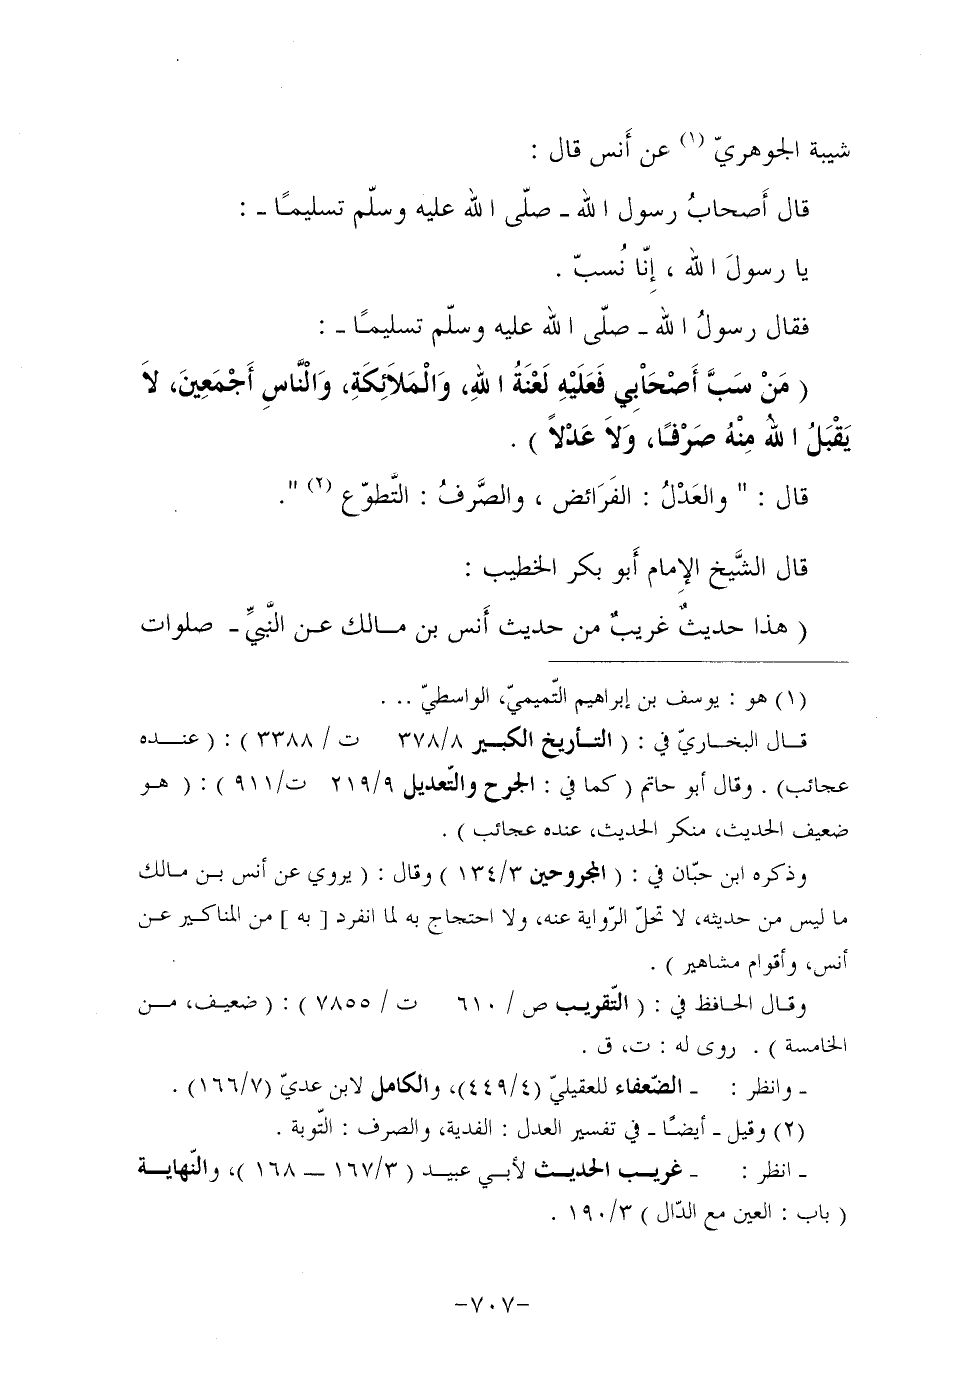 شيبة الجوهريّ (١) عن أَنس قال :
قال أَصحابُ رسول الله ـ صلّى الله عليه وسلّم تسليمًا ـ :
يا رسولَ الله ، إِنّا نُسبّ .
فقال رسولُ الله ـ صلّى الله عليه وسلّم تسليمًا ـ :
( مَنْ سَبَّ أَصْحَاْبِي فَعَلَيْهِ لَعْنَةُ اللهِ، وَالْمَلاَئِكَةِ، وَالْنَّاسِ أَجْمَعِينَ، لاَ
يَقْبَلُ اللهُ مِنْهُ صَرْفًا، وَلاَ عَدْلاً ) .
قال : " والعَدْلُ : الفَرَائض ، والصَّرفُ : التَّطوّع (٢) ".
قال الشَّيخ الإِمام أَبو بكر الخطيب :
( هذا حديثٌ غريبٌ من حديث أَنس بن مالك عن النَّبيِّ ـ صلوات
(١) هو : يوسف بن إبراهيم التّميميّ، الواسطيّ .. .
قال البخاريّ في : ( التأريخ الكبير ٣٧٨/٨ ت / ٣٣٨٨ ) : ( عنده
عجائب) . وقال أبو حاتم ( كما في : الجرح والتّعديل ٢١٩/٩ ت/٩١١ ) : ( هو
ضعيف الحديث، منكر الحديث، عنده عجائب ) .
وذكره ابن حبّان في : ( المجروحين ١٣٤/٣ ) وقال : ( يروي عن أنس بن مالك
ما ليس من حديثه، لا تحلّ الرّواية عنه، ولا احتجاج به لما انفرد [ به ] من المناكير عن
أنس، وأقوام مشاهير ) .
وقال الحافظ في : ( التّقريب ص / ٦١٠ ت / ٧٨٥٥ ) : ( ضعيف، من
الخامسة ) . روى له : ت، ق .
ـ وانظر : ـ الضّعفاء للعقيليّ (٤٤٩/٤)، والكامل لابن عديّ (١٦٦/٧) .
(٢) وقيل ـ أيضًا ـ في تفسير العدل : الفدية، والصرف : التّوبة .
ـ انظر : ـ غريب الحديث لأبي عبيد ( ١٦٧/٣ ــ ١٦٨ )، والنّهاية
( باب : العين مع الدّال ) ١٩٠/٣ .
-٧٠٧-